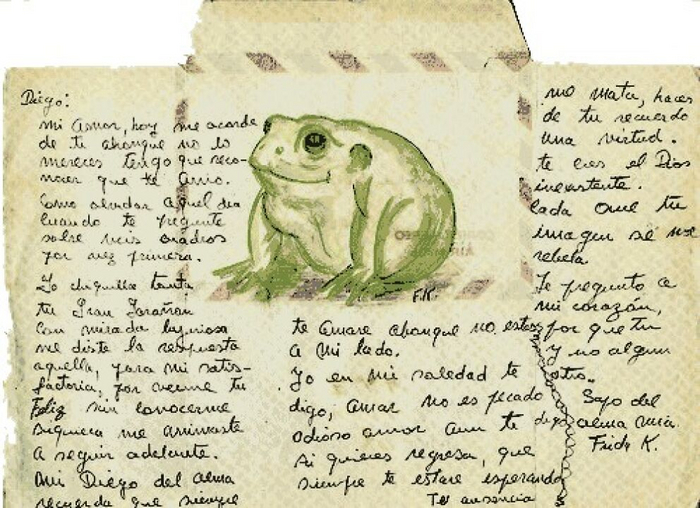 Diego:
Mi Amor, hoy me acorde
de ti ahonque no lo
mereces tengo que reco-
nocer que te Amo.
Como olvidar aquel dia
cuando te pregunte
sobre mis cuadros
por vez primera.
Yo chiquilla tonta,
tu Gran Señorón
Con mirada lujuriosa
me diste la respuesta
aquella, para mi satis-
factoria, por verme tu
Feliz sin conocerme
siquiera me animaste
A seguir adelante.
Mi Diego del alma
recuerda que siempre
te amare ahonque no estes
a mi lado.
Yo en mi soledad te
digo, amar no es pecado
odioso amor aun te digo
si quieres regresa, que
siempre te estare esperando
Tu ausencia
me mata, haces
de tu recuerdo
una virtud.
te eres el Dios
inexistente.
Cada que tu
imagen se me
rebela.
Te pregunto a
mi corazón,
por que tu
y no algun
otro.
Suyo del
alma mia.
Frida K.
F.K.